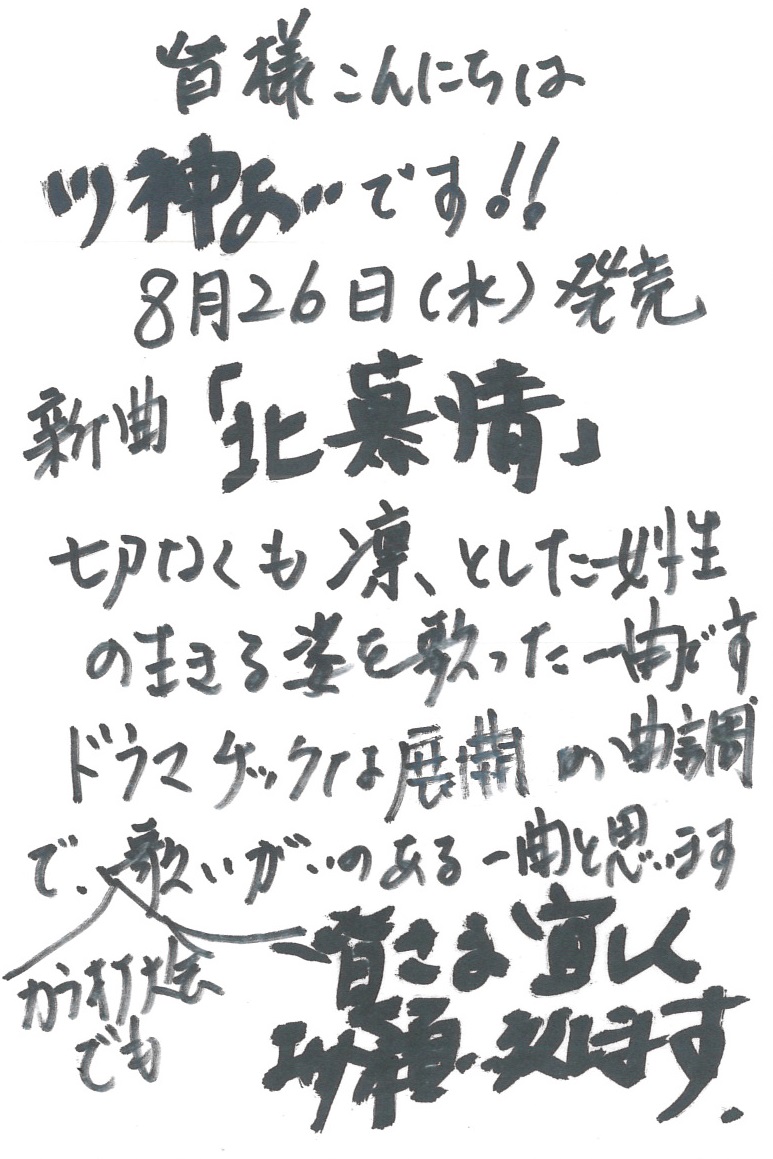 皆様こんにちは
川神あいです!!
8月26日(水)発売
新曲「北慕情」
切なくも凛、とした女性
の生きる姿を歌った一曲です
ドラマチックな展開の曲調
で、歌いがいのある一曲と思います
カラオケ大会
でも
皆さま宜しく
お願い致します.